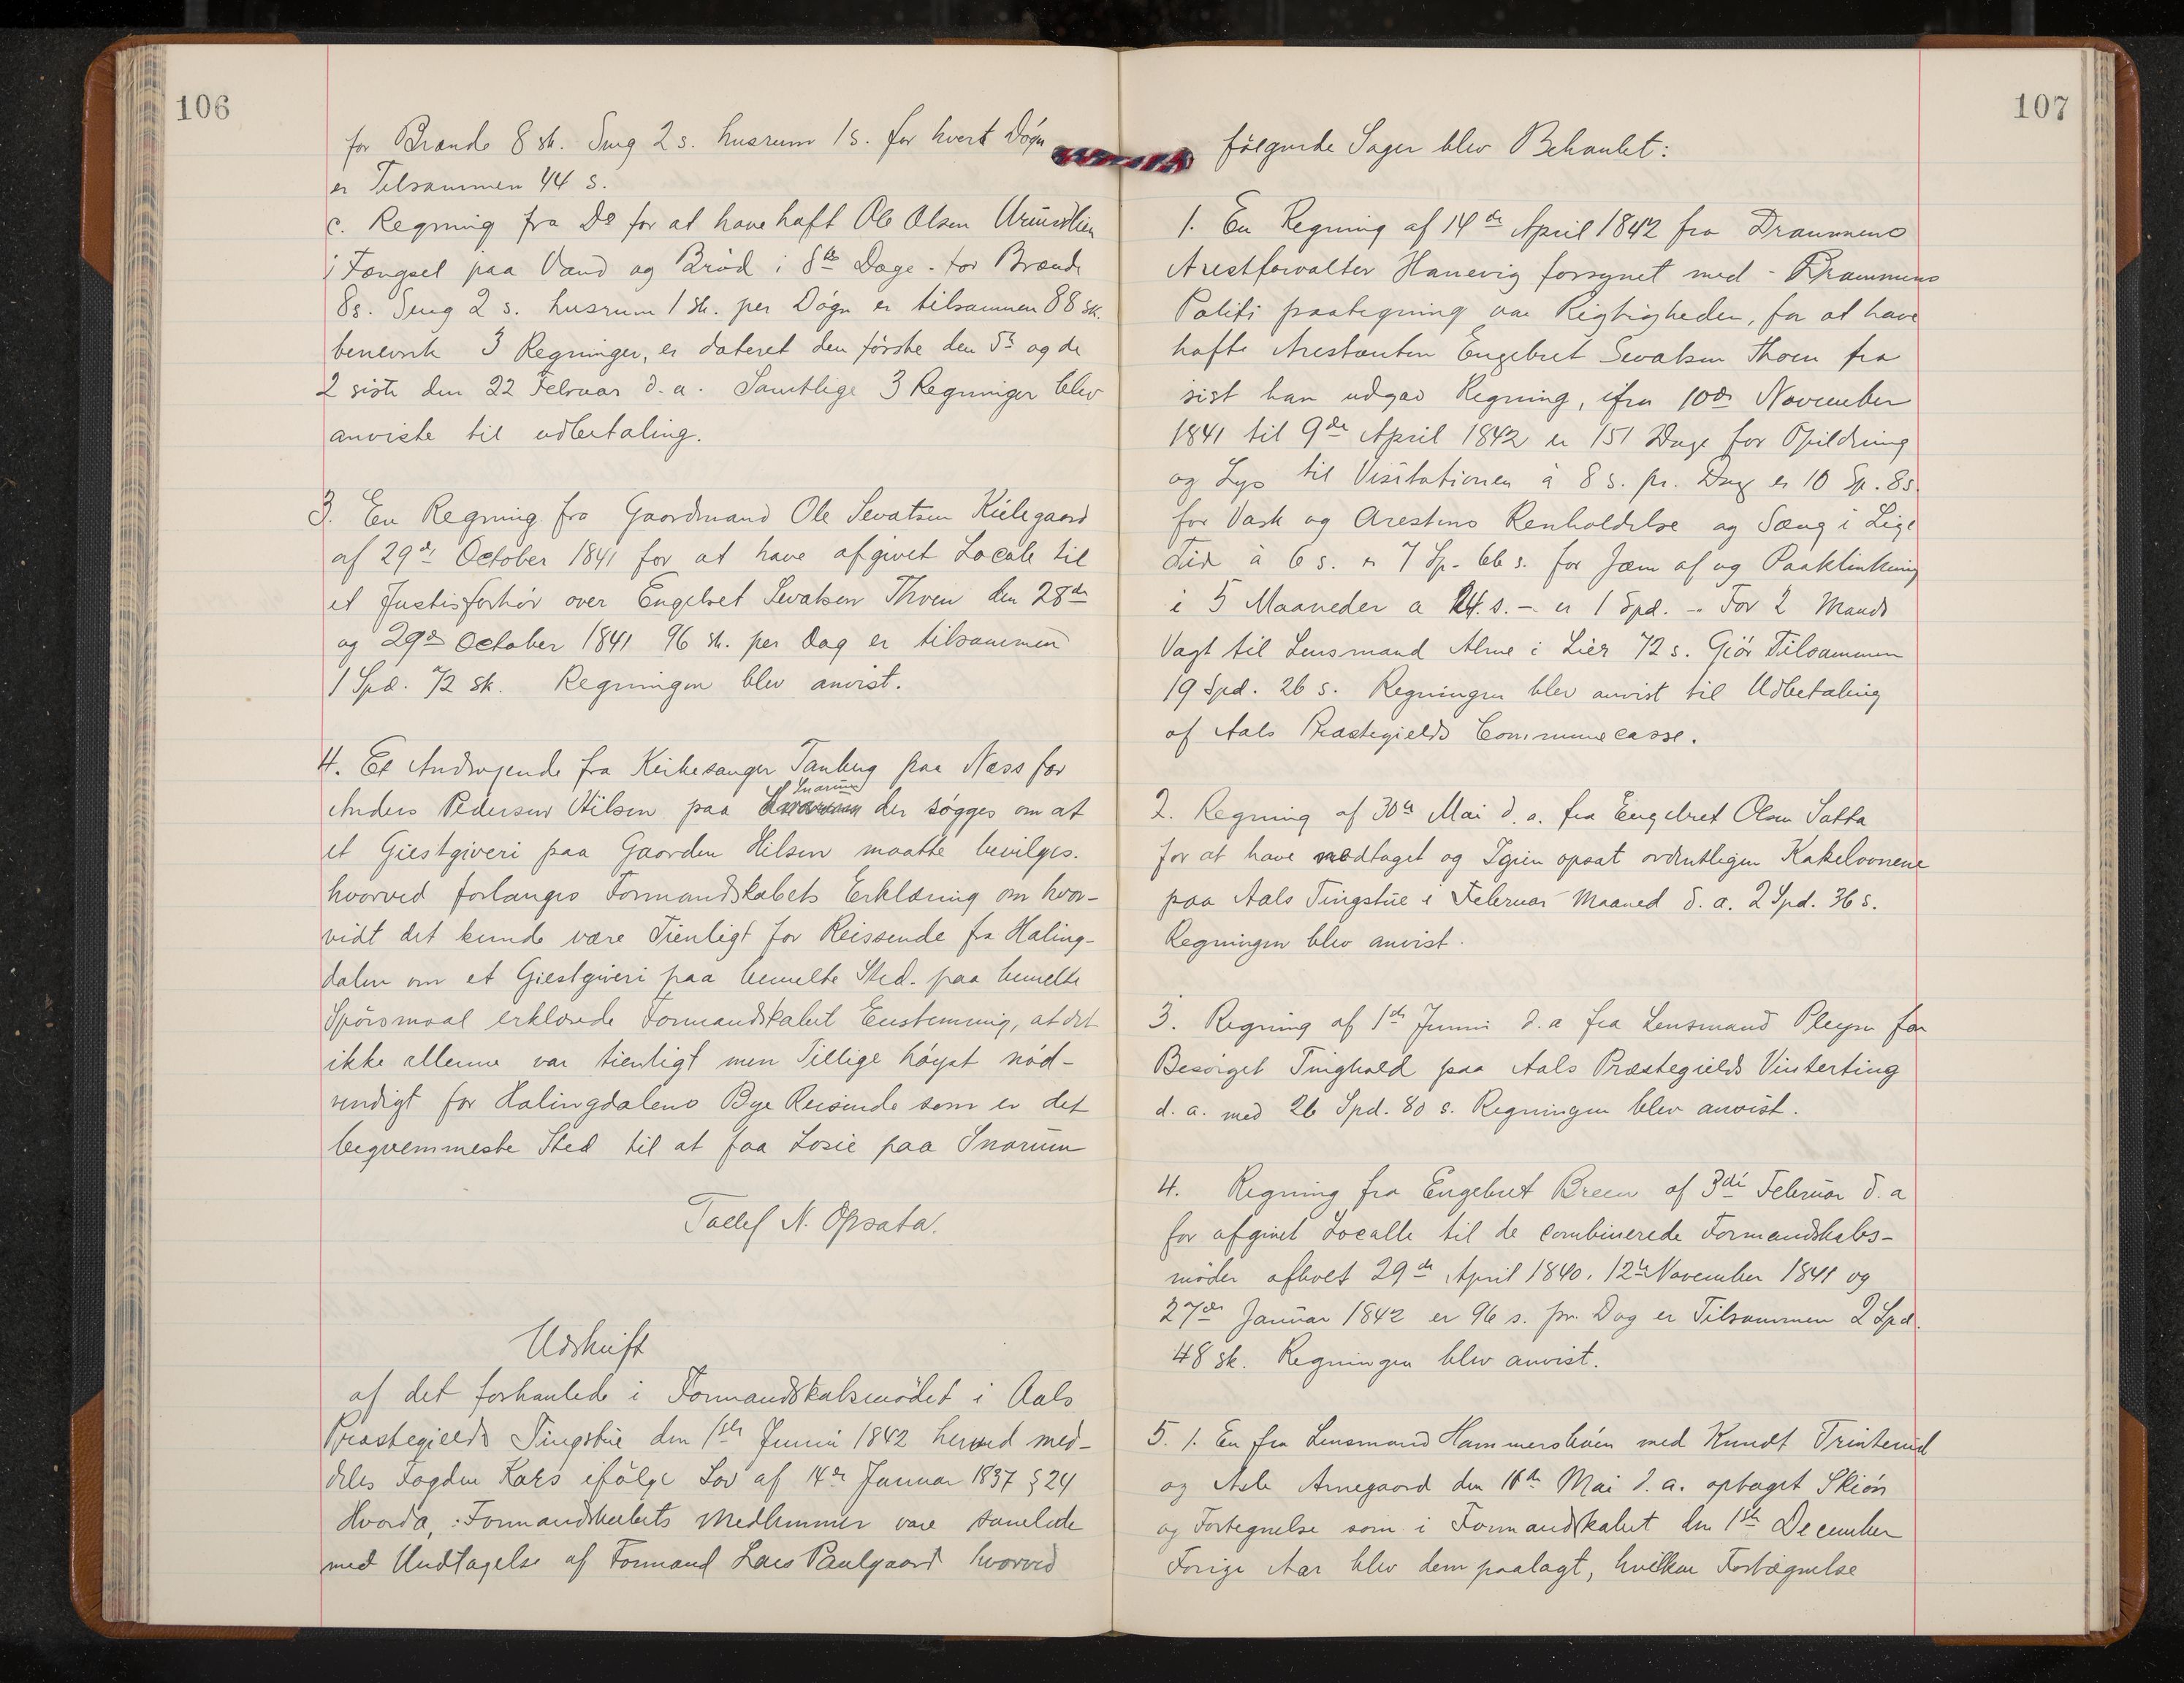 106
for Brænde 8 sk. Seng 2 s. husrum 1 s. for hvert Døgn
er Tilsammen 44 s.
c. Regning fra Do for at have haft Ole Olsen
i Fængsel paa Vand og Brød i 8te Dage. for Brænde
8s. Seng 2 s. husrum 1 sk. per Døgn er tilsammen 88 sk.
benevnte 3 Regninger, er dateret den første den 5te og de
2 siste den 22 Februar d. a. Samtlige 3 Regninger blev
anviste til udbetaling.
3. En Regning fra Gaardmand Ole Sevatsen Kirkegaard
af 29de October 1841 for at have afgivet Locale til
et Justisforhør over Engebret Sevatsen Thoen den 28de
og 29de October 1841 96 sk. per Dag er tilsammen
1 Spd. 72 sk. Regningen blev anvist.
4. Et Andragende fra Kirkesanger Tanberg paa Næss for
Snarum
Anders Pedersen Hilsen paa der søgges om at
et Giestgiveri paa Gaarden Hilsen maatte bevilges.
hvorved forlanges Formandskabets Erklæring om hvor-
vidt det kunde være Tienligt for Reissende fra Haling-
dalen om et Giestgiveri paa bemelte Sted. paa bemelte
Spørsmaal erklærede Formandskabet Enstemmig, at det
ikke allene var tienligt men Tillige høyst nød-
vendigt for Halingdalens Bye Reisende som er det
beqvemmeste Sted til at faa Losie paa Snarum
Tollef N. Opsata.
Udskrift
af det forhanlede i Formandskabsmødet i Aals
Præstegields Tingstue den 1ste Junii 1842 herved med-
deles Fogden Kars ifølge Lov af 14de Januar 1837 § 24
Hvorda, Formandskabets Medlemmer vare samlede
med Undtagelse af Formand Lars Paulgaard hvorved
107
følgende Sager blev Behanlet:
1. En Regning af 14de April 1842 fra Drammens
Arestforvalter Hanevig forsynet med - Drammens
Politi paategning om Rigtigheden, for at have
hafte Arestanten Engebret Sevatsen Thoen fra
sist han udgav Regning, ifra 10de November
1841 til 9de April 1842 er 151 Dage for Opildning
og Lys til Visitationen à 8 s. pr. Dag er 10 Sp. 8s.
for Vask og Arestens Renholdelse og Sæng i Lige
Tid à 6 s. er 7 Sp. 66 s. for Jærn af og Paaklinkning
i 5 Maaneder a 24 s. - er 1 Spd. - For 2 Mands
Vagt til Lensmand Alme i Lier 72 s. Giør Tilsammen
19 Spd. 26 s. Regningen blev anvist til Udbetaling
af Aals Præstegields Communecasse.
2. Regning af 30te Mai d. a. fra Engebret Olsen Satta
for at have nedtaget og Igien opsat ordentligen Kakelovnene
paa Aals Tingstue i Februar Maaned d. a. 2 Spd. 36 s.
Regningen blev anvist.
3. Regning af 1ste Junii d. a fra Lensmand Pleym for
Besørget Tinghold paa Aals Præstegields Vinterting
d. a. med 26 Spd. 80 s. Regningen blev anvist.
4. Regning fra Engebret Breen af 3die Februar d. a
for afgivet Localle til de combinerede Formandskabs-
møder afholt 29de April 1840. 12te November 1841 og
27de Januar 1842 er 96 s. pr. Dag er Tilsammen 2 Spd.
48 sk. Regningen blev anvist.
5. 1. En fra Lensmand Hammershøen med Knudt Trinterud
og Asle Arnegaard den 16de Mai d. a. optaget Skiøn
og Fortegnelse som i Formandskabet den 1ste December
Forige Aar blev dem paalagt, hvilken Fortegnelse